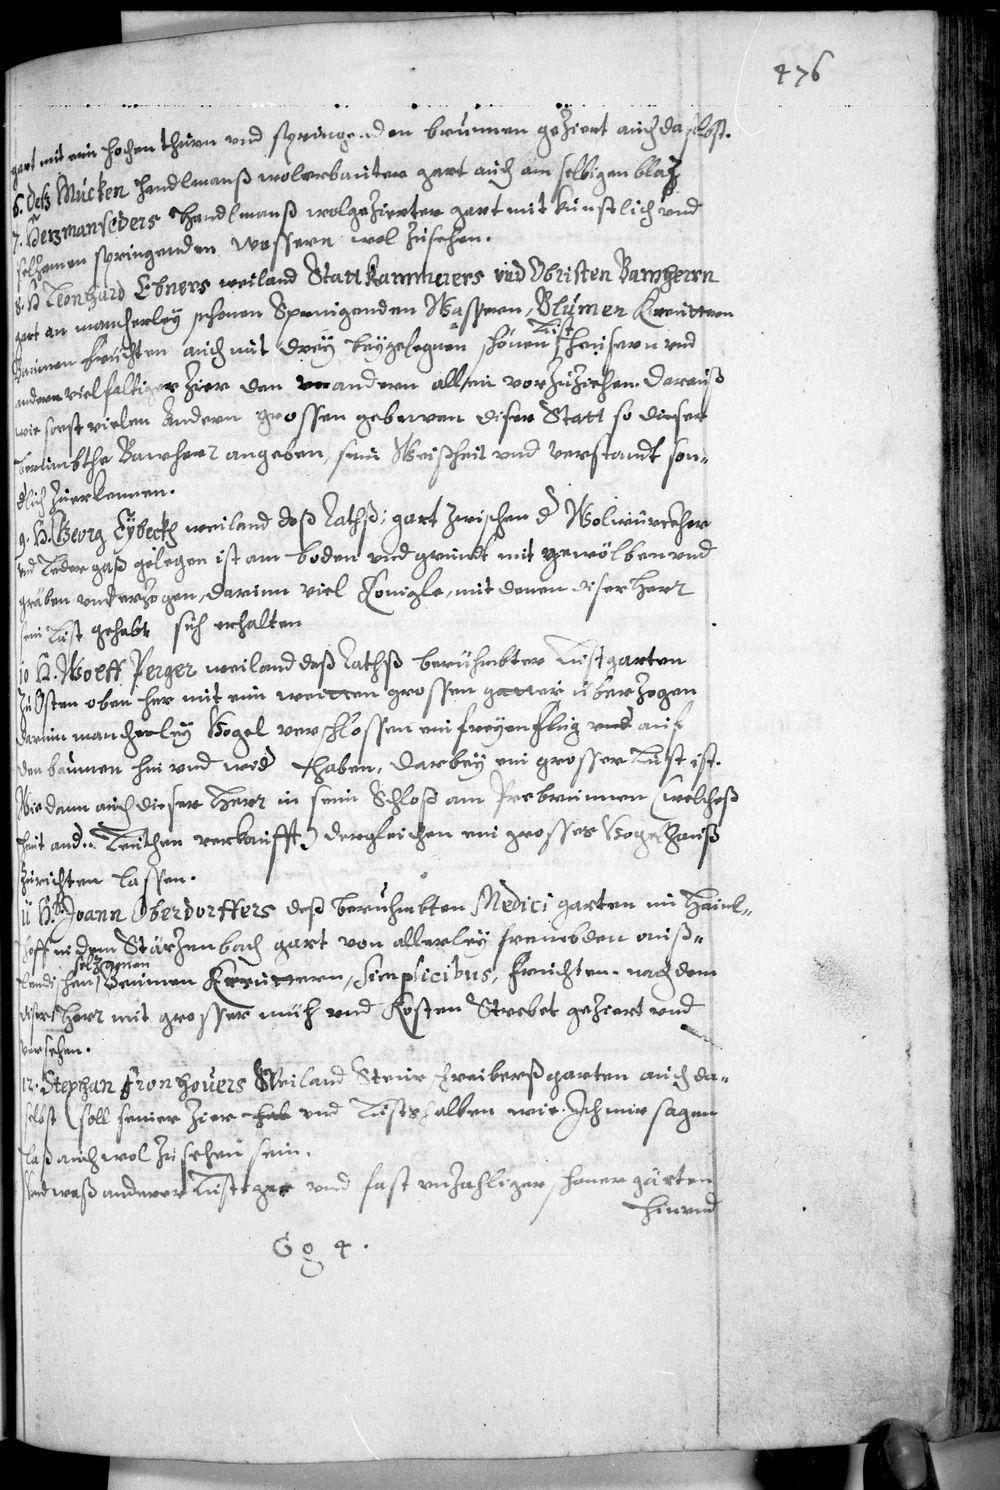 476
gart mit ein hochen thurn vnd springenden brunnen geziert auch daselbst.
6. deß Mucken Handlmanß wolerbauter gart auch am selbigen blatz
7. Hertzmanseders Handlmanß wolgezierter gart mit künstlich vnd
selzamen springenden wassern wol zusehen.
8. H. Leonhard Ebners weiland Statt Kammerers vnd Obristen Bawherrn
gart an mancherley schonen Springenden Wassern, Blumen Kreuttern
Baumen fruchten auch mit drey beygelegnen schönen Lustheusern vnd
andern vielfaltiger Zier den andern allen vorzuziehen. Darauß
wie sonst vielen Andern grossen gebewen diser Statt so dieser
berümbthe Bawherr angeben, sein Weißheit vnd verstandt son-
dlich zuerkennen.
9. H. Georg Eybeckh weiland deß Rathß, gart zwischen d Wolwürckher
vnd Leder gaß gelegen ist am boden vnd grundt mit gewölben vnd
gräben vnderzogen, darinn viel Konigle, mit denen diser Herr
sein Lust gehabt sich erhalten
10 H. Wolff Perger weiland deß Rathß berühmbter Lustgarten
Zu Osten oben her mit ein weitten grossen gatter überzogen
darinn mancherley Vogel verschlossen ein freyen flug auf
den baumen hin vnd wid haben, darbey ein grosser Lust ist.
Wie dann auch dieser Herr in sein Schloß am Prebrunnen (welcheß
heut and. Leuthen verkaufft) dergleichen ein grosses Vogelhauß
zurichten lassen.
11 H. D. Joann Oberdorffers deß beruhmbten Medici garten im Hainl-
hoff in dem Stärzenbach gart von allerley frembden auß-
lendischen selzamen Beumen Kreuttern, Simplicibus, fruchten. nach dem
diser Herr mit grosser müh vnd Kosten Strebet geziert vnd
versehen.
12. Stephan Fronhouers Weiland Steurschreiberß garten auch da-
selbst (soll seiner Zier vnd Lustshalben wie Ich mir sagen
laß auch wol zu sehen sein.
Vnd waß anderer Lustiger vnd fast vnzahliger schoner gärten
hin vnd
Gg 4.